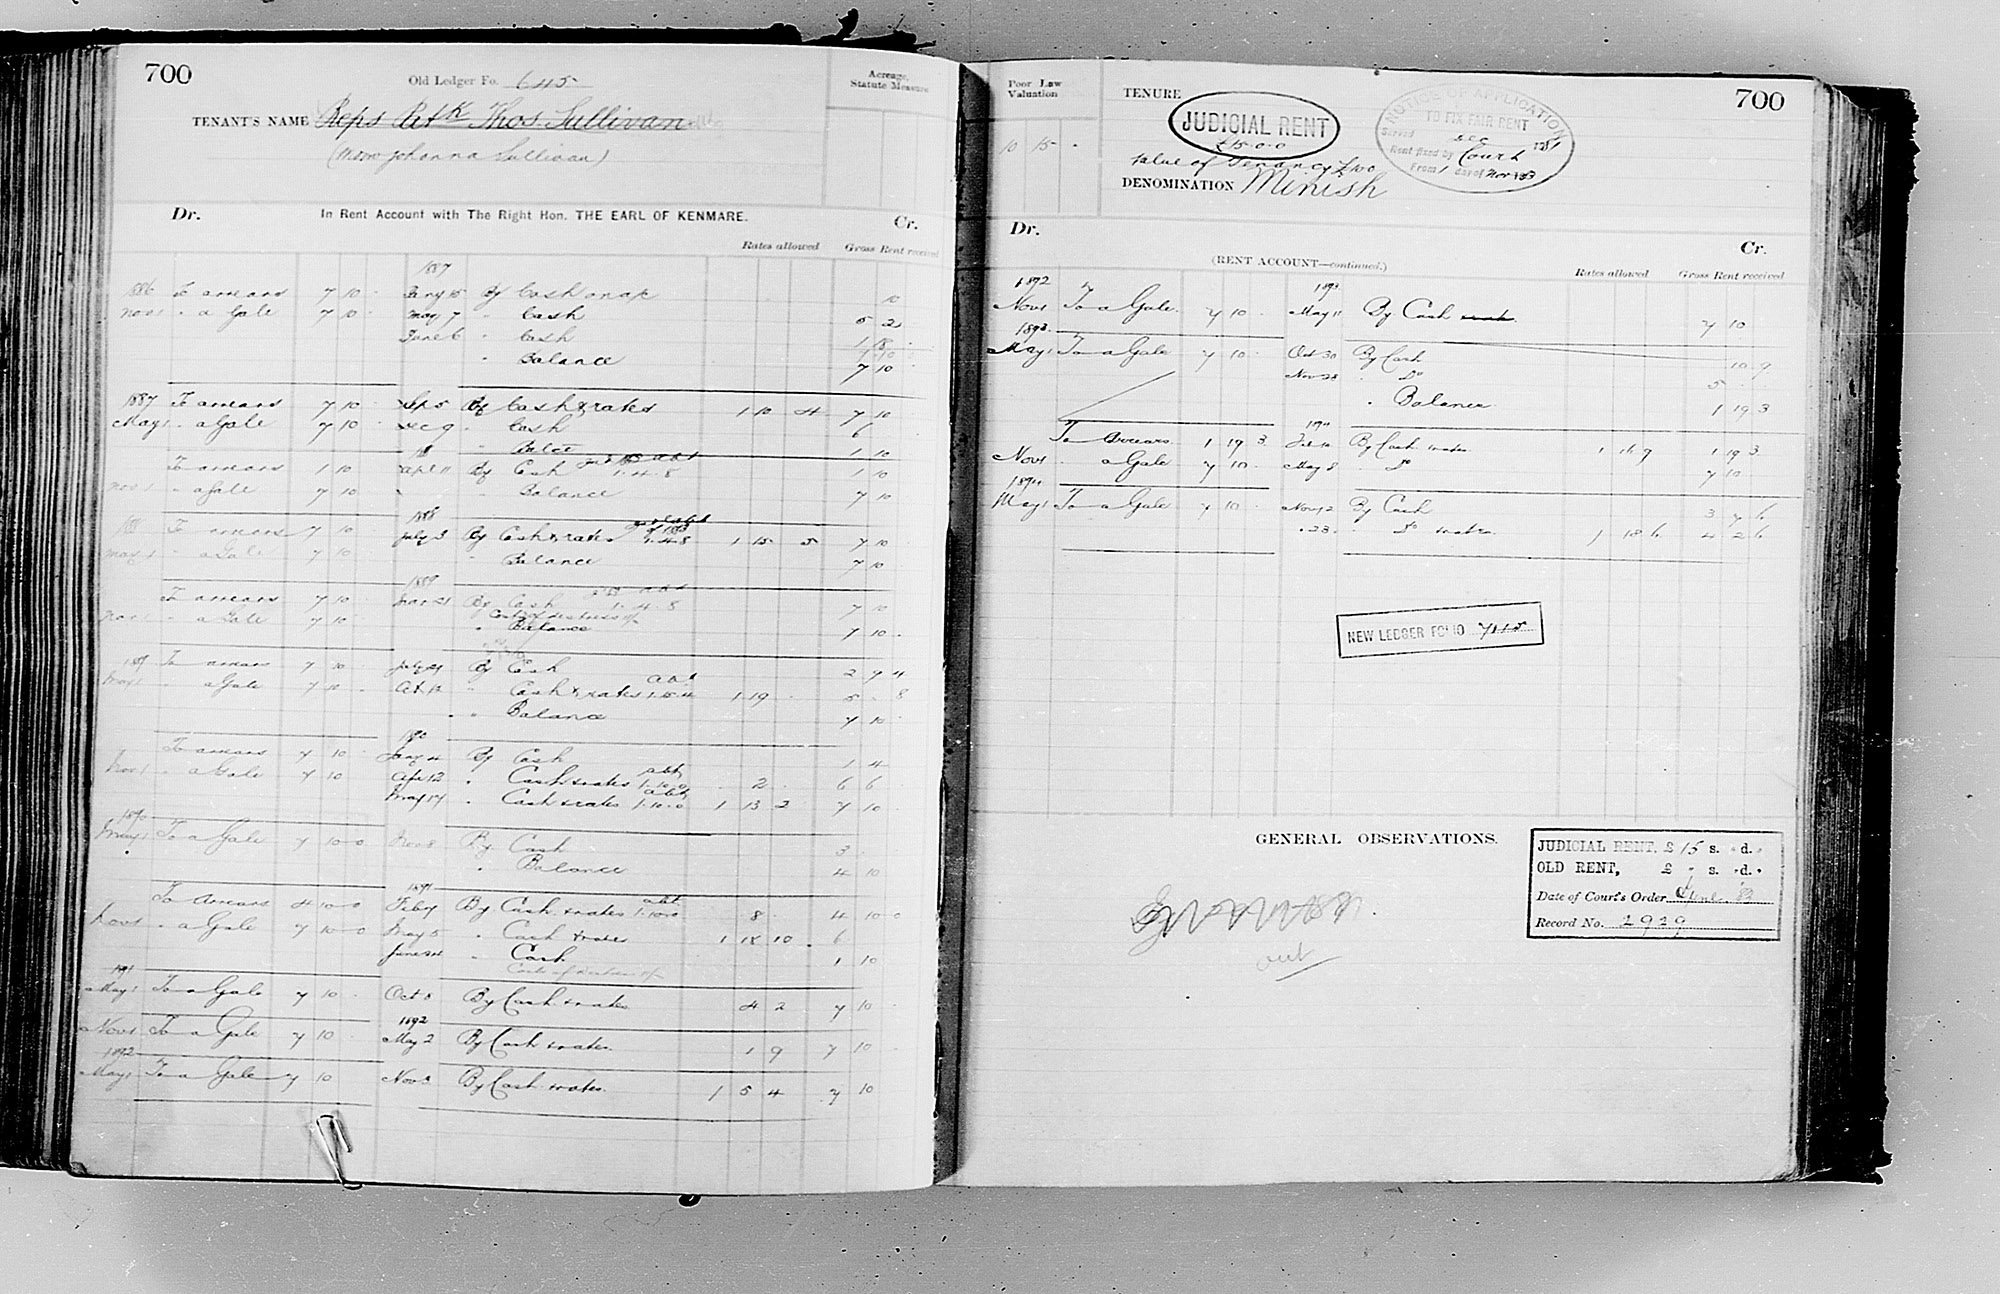 700
Old Ledger Fo. 645
TENANT'S NAME Reps Patk Thos Sullivan
(Now Johanna Sullivan)
Acreage, Statute Measure
Dr. In Rent Account with The Right Hon. THE EARL OF KENMARE. Cr.
Rates allowed Gross Rent received
1887
1886 To arrears 7 10 · Jany 15 By Cash on a/c 10
Nov 1 " a Gale 7 10 · May 7 " Cash 5 2
June 6 " Cash 1 18
7 10
" Balance 7 10
1887 To arrears 7 10 Sep 5 By Cash & rates 1 10 4 7 10
May 1 " a Gale 7 10 Dec 9 " Cash 6
" Balce 1 10
To arrears 1 10 Apl 11 By Cash 1.4.8 1 10
Nov 1 " a Gale 7 10 " Balance 7 10
1888
To arrears 7 10 July 3 By Cash & rates 1.4.8 1 15 5 7 10
May 1 " a Gale 7 10 " Balance 7 10
1889
To arrears 7 10 Mar 21 By Cash 1.4.8 7 10
Nov 1 " a Gale 7 10 Costs of distress
" Balance 7 10
1889 To arrears 7 10 July 24 By Cash 2 7 4
May 1 " a Gale 7 10 Oct 12 " Cash & rates abt 1 19 5 · 8
" Balance 7 10
1890
To arrears 7 10 Jany 4 By Cash 1 4
Nov 1 " a Gale 7 10 Apr 12 " Cash & rates abt 1.10.0 2 6 6
May 17 " Cash & rates abt 1.10.0 1 13 2 7 10
1890
May 1 To a Gale 7 10 0 Nov 8 By Cash 3
" Balance 4 10
1891
To Arrears 4 10 0 Feby By Cash & rates abt 1.10.0 8 4 10 0
Nov 1 " a Gale 7 10 0 May 5 " Cash & rates 1 18 10 6
June 24 " Cash 1 10
Costs of
1891
May 1 To a Gale 7 10 Oct 8 By Cash & rates 4 2 7 10
1892
Nov 1 To a Gale 7 10 May 2 By Cash & rates 1 9 7 10
1892
May 1 To a Gale 7 10 Nov By Cash & rates 1 5 4 7 10
Poor Law Valuation
10 15 ·
TENURE
JUDICIAL RENT
£15-0-0
Value of Tenancy £100
DENOMINATION Minish
NOTICE OF APPLICATION
TO FIX FAIR RENT
Served Dec 1881
Rent fixed by Court
From 1 day of Nov 1883
700
Dr. Cr.
(RENT ACCOUNT—continued.)
Rates allowed Gross Rent received
1892 1893
Nov 1 To a Gale 7 10 May 11 By Cash 7 10
1893
May 1 To a Gale 7 10 Oct 30 By Cash 10 9
Nov 28 " Do 5
" Balance 1 19 3
1894
To Arrears 1 19 3 Feb By Cash & rates 1 16 7 1 19 3
Nov 1 a Gale 7 10 May 8 Do 7 10
1894
May 1 To a Gale 7 10 Nov 2 By Cash 3 7 6
" 23 Do & rates 1 18 6 4 2 6
NEW LEDGER FOLIO 7115
GENERAL OBSERVATIONS.
out
JUDICIAL RENT, £ 15 s. d.
OLD RENT, £ s. d.
Date of Court's Order June 83
Record No. 2929